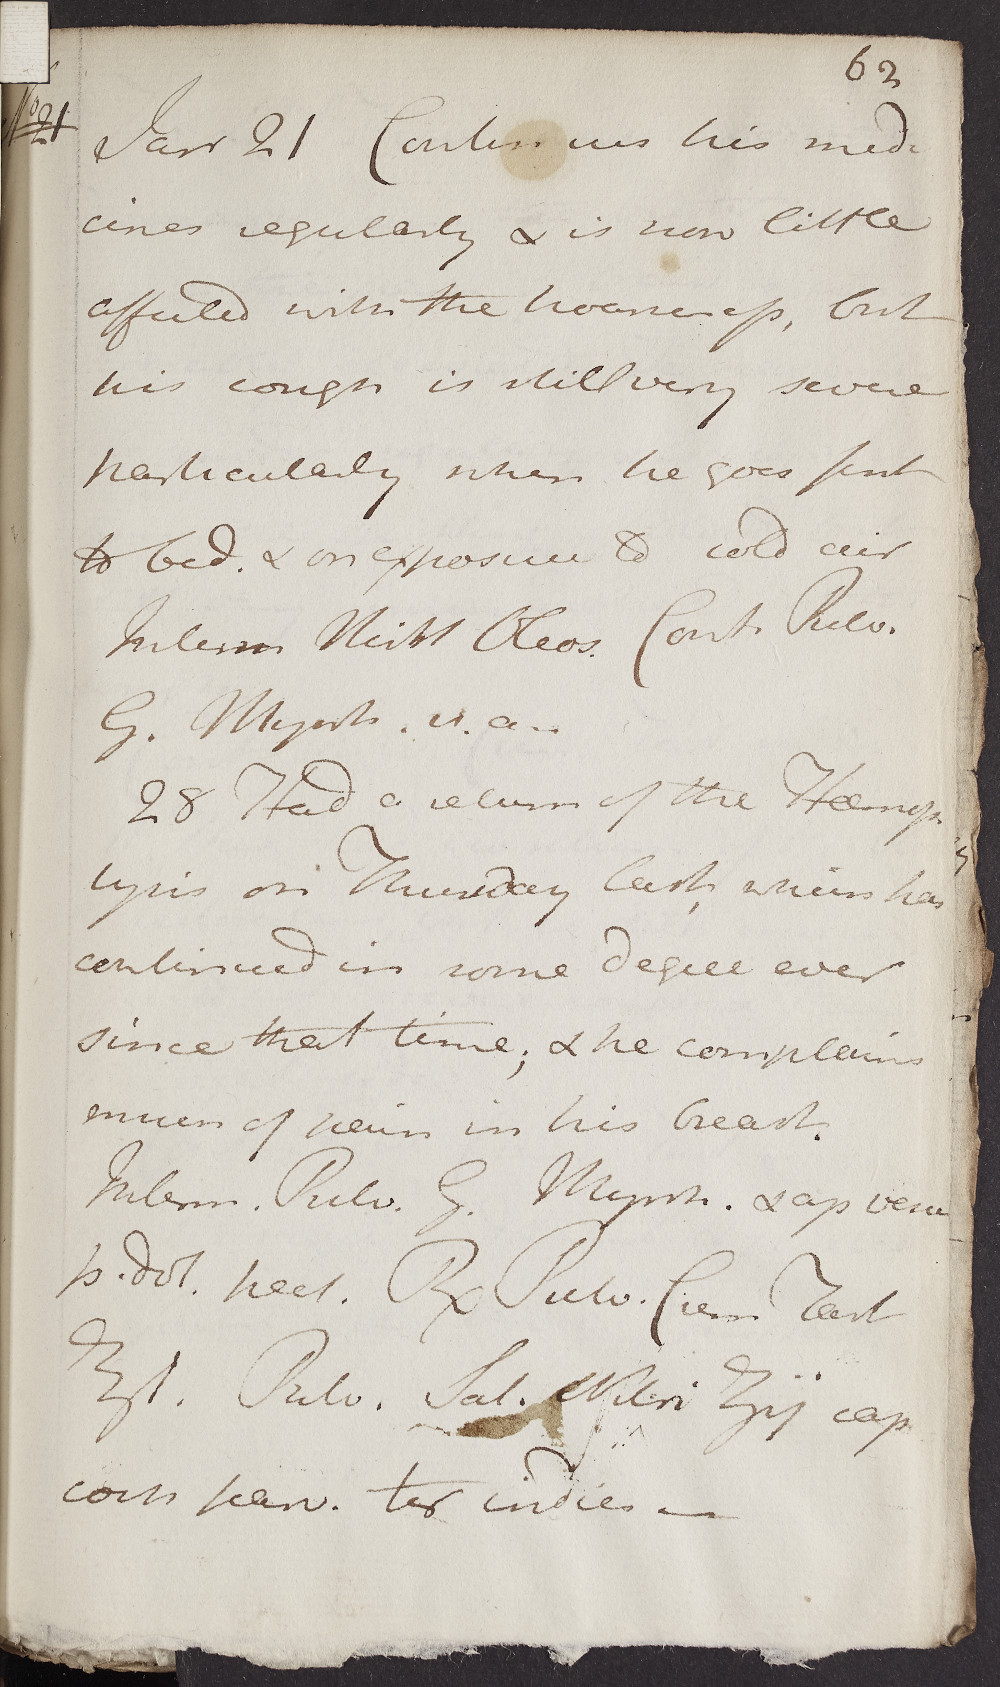 62
No 21
Janr 21 Continues his medi
cines regularly & is now little
affected with the hoarseness, but
his cough is still very severe
particularly when he goes first
to bed. & on exposure to cold air
Interm Mixt Oleos. Cont. Pulv.
G. Myrrh. ut. an.
28 Had a return of the Hæmop
tysis on Thursday last, which has
continued in some degree ever
since that time; & he complains
much of pain in his breast.
Interm. Pulv. G. Myrrh. & ap vesic
p. dol. pect. Rx Pulv. Crem Tart
℥ß. Pulv. Sal. Nitri ʒij cap
coch parv. ter indies